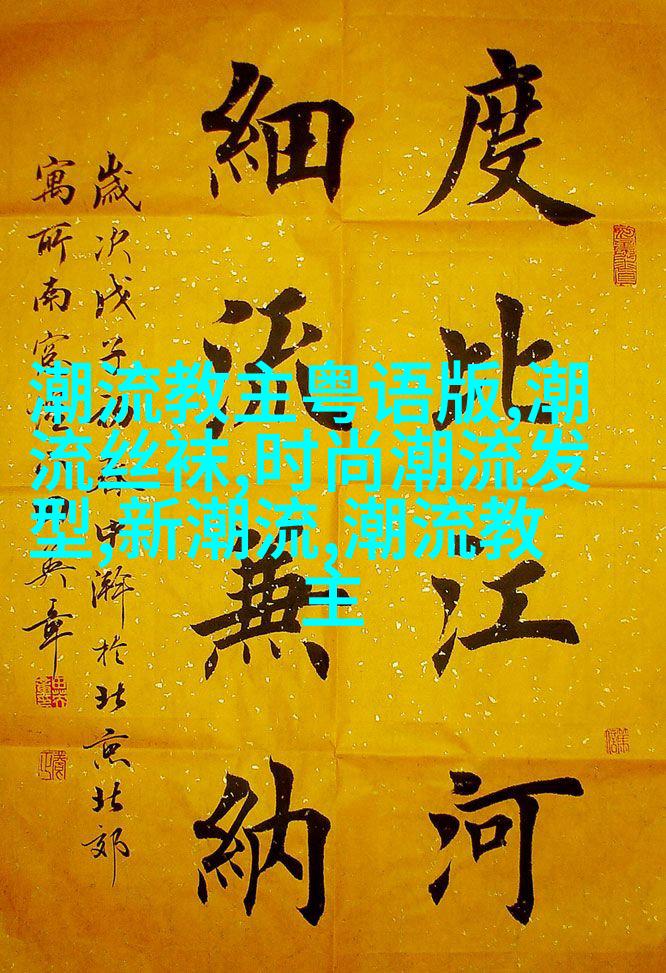 度比江河
細流兼納
歲次戊子初春中澣於北京北郊
寓所南窗田英章
潮流教主粤语版,潮
流丝袜,时尚潮流发
型,新潮流,潮流教
主